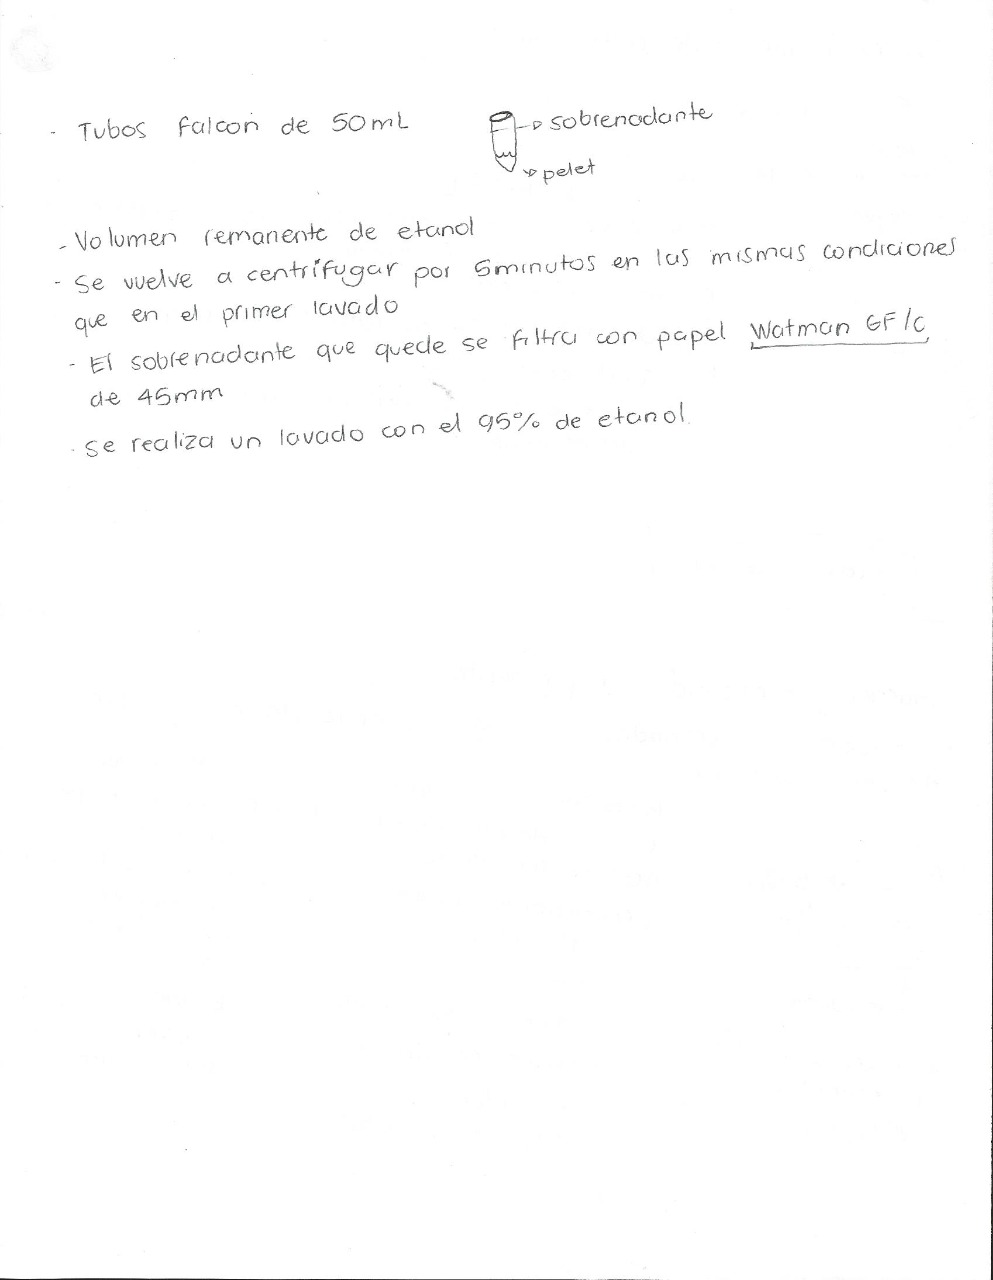 - Tubos falcon de 50mL
sobrenadante
pelet
- Volumen remanente de etanol
- Se vuelve a centrífugar por 5minutos en las mismas condiciones
que en el primer lavado
- El sobrenadante que quede se filtra con papel Watman GF/C
de 45mm
- Se realiza un lavado con el 95% de etanol.